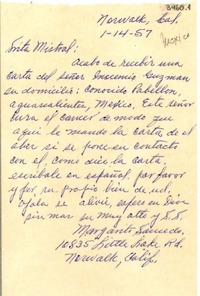 3960.1
Mexico
Norwalk, Calf.
1-14-57
Srita Mistral:
Acabo de recibir una
carta del señor Inocensio Guzman
su domicilio: Conocido Pabellon,
aguascalientes, Mexico. Este señor
cura el cancer de modo que
aqui le mando la carta de el
aber si se pone en contacto
con el, como dice la carta,
escribale en español, por favor
y por su propio bien de ud,
ojala se alivie, espero en Dios
sin mas su muy atto y S.S.
Margarito
10835 Little Lake Rd.
Norwalk, Calif.